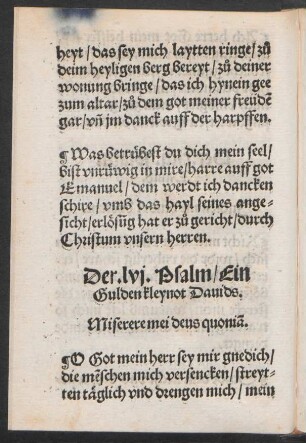 heyt / das sey mich laytten ringe / zů
deim heyligen berg bereyt / zů deiner
wonung bringe / das ich hynein gee
zum altar / zů dem got meiner freudē
gar / vñ im danck auff der harpffen.
¶Was betrübest du dich mein seel /
bist vnrüwig in mire / harre auff got
Emanuel / dem werdt ich dancken
schire / vmb das hayl seines ange-
sicht / erlösũg hat er zů gericht / durch
Christum vnsern herren.
Der .lvj. Psalm / Ein
Gulden kleynot Dauids.
Miserere mei deus quoniã.
¶O Got mein herr sey mir gnedich /
die mẽschen mich versencken / streyt-
ten täglich vnd drengen mich / mein